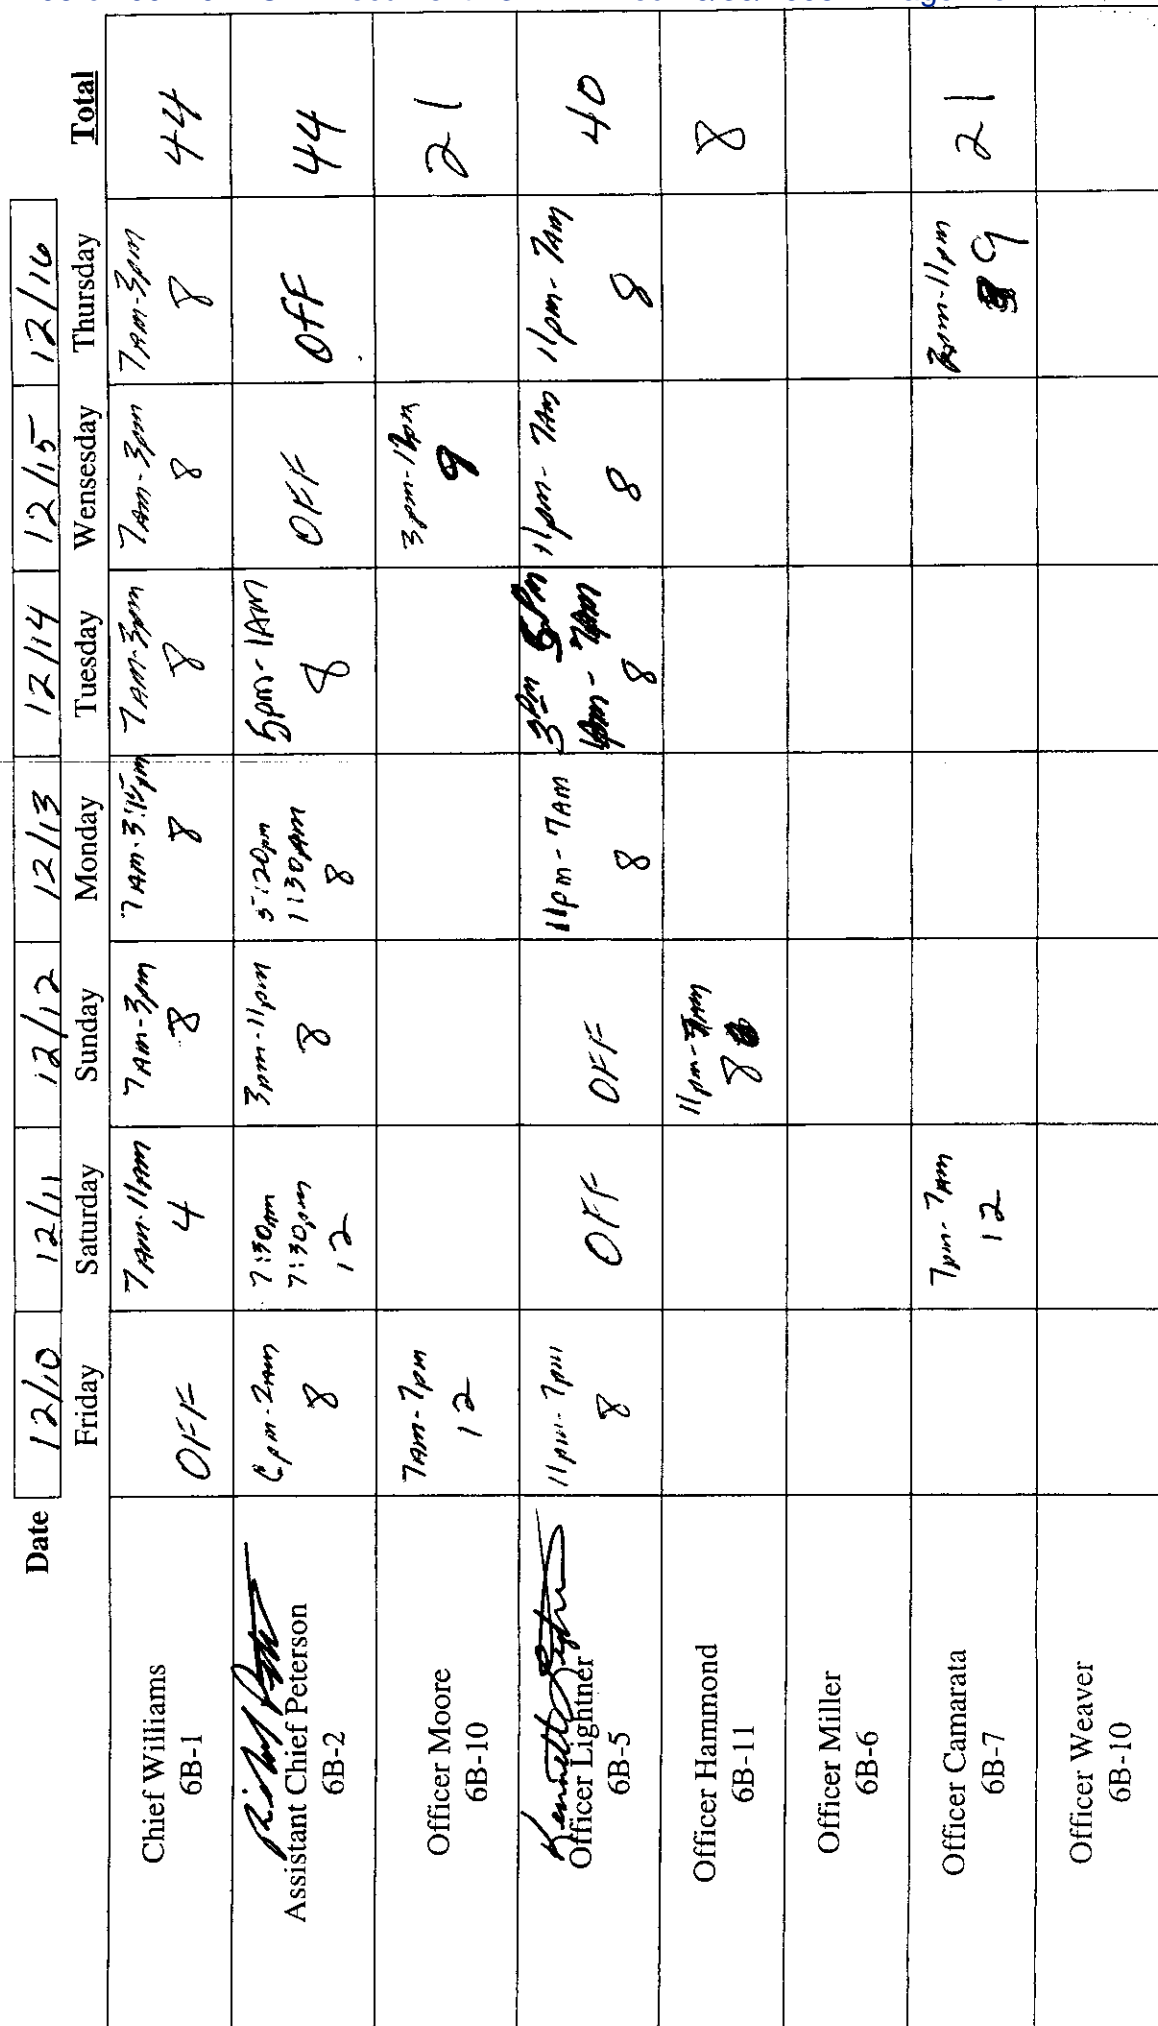 Date 12/10 12/11 12/12 12/13 12/14 12/15 12/16
Friday Saturday Sunday Monday Tuesday Wensesday Thursday Total
Chief Williams
6B-1
OFF
7AM-11AM
4
7AM-3pm
8
7AM-3:15pm
8
7AM-3pm
8
7AM-3pm
8
7AM-3pm
8
44
Assistant Chief Peterson
6B-2
6pm-2AM
8
7:30AM
7:30pm
12
3pm-11pm
8
5:20pm
1:30AM
8
5pm-1AM
8
OFF
OFF
44
Officer Moore
6B-10
7AM-7pm
12
3pm-12pm
9
21
Kenneth Lightner
Officer Lightner
6B-5
11pm-7pm
8
OFF
OFF
11pm-7AM
8
3Pm 5Pm
7AM
8
11pm-7AM
8
11pm-7AM
8
40
Officer Hammond
6B-11
11pm-7AM
8
8
Officer Miller
6B-6
Officer Camarata
6B-7
7pm-7AM
12
2pm-11pm
9
21
Officer Weaver
6B-10